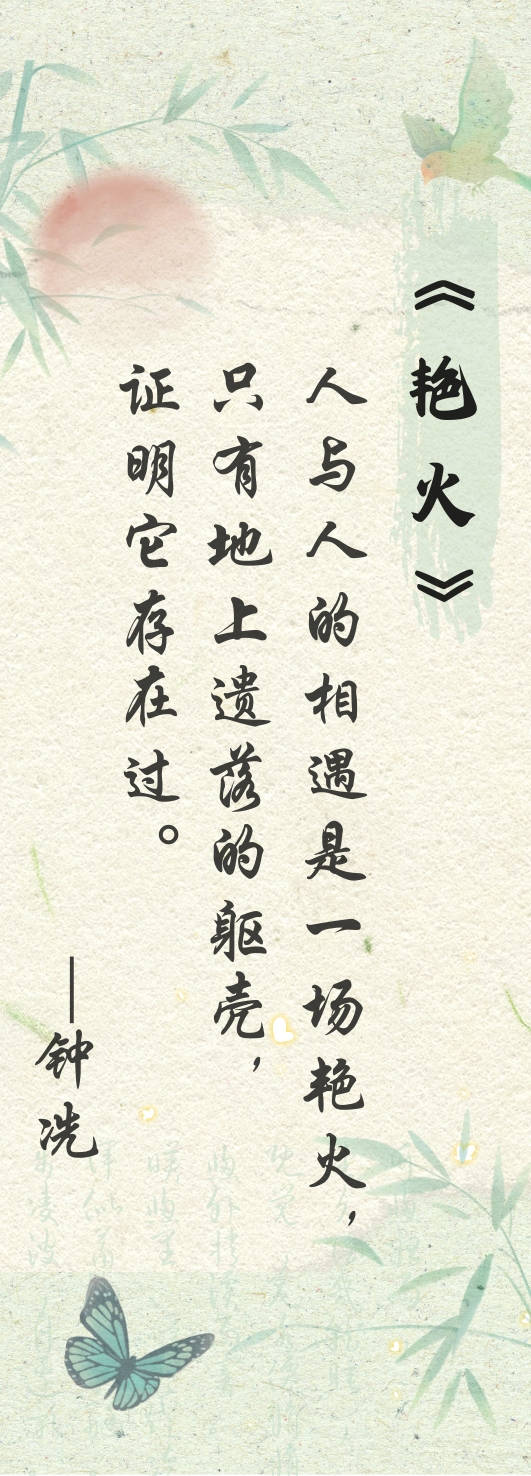 《艳火》
人与人的相遇是一场艳火，
只有地上遗落的躯壳，
证明它存在过。
—钟冼